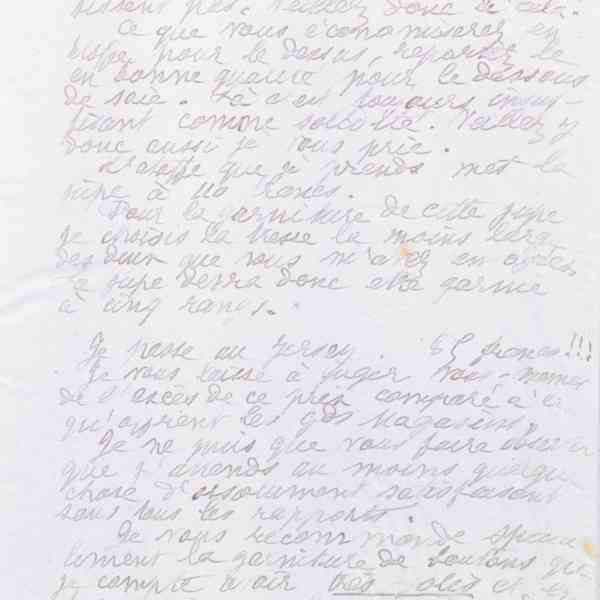 pas. Veuillez donc
Ce que vous économiserez en
pour le dessus, reportez le
en bonne qualité pour le dessous
de soie. Là c'est toujours insuf-
fisant comme solidité. Veillez y
donc aussi je vous prie.
L'étoffe que je prends met la
jupe à 110 francs.
Pour la garniture de cette jupe
je choisis la tresse la moins large
des deux que vous m'avez en
La jupe devra donc être garnie
à cinq rangs.
Je passe au Jersey. francs!!!
Je vous laisse à juger vous-même
de l'excès de ce prix comparé à
qu'offrent les gds Magasins.
Je ne puis que vous faire observer
que j'attends au moins quelque
chose d'absolument satisfaisant
sous tous les rapports.
Je vous recommande spécia
lement la garniture de boutons que
je compte avoir très jolis et